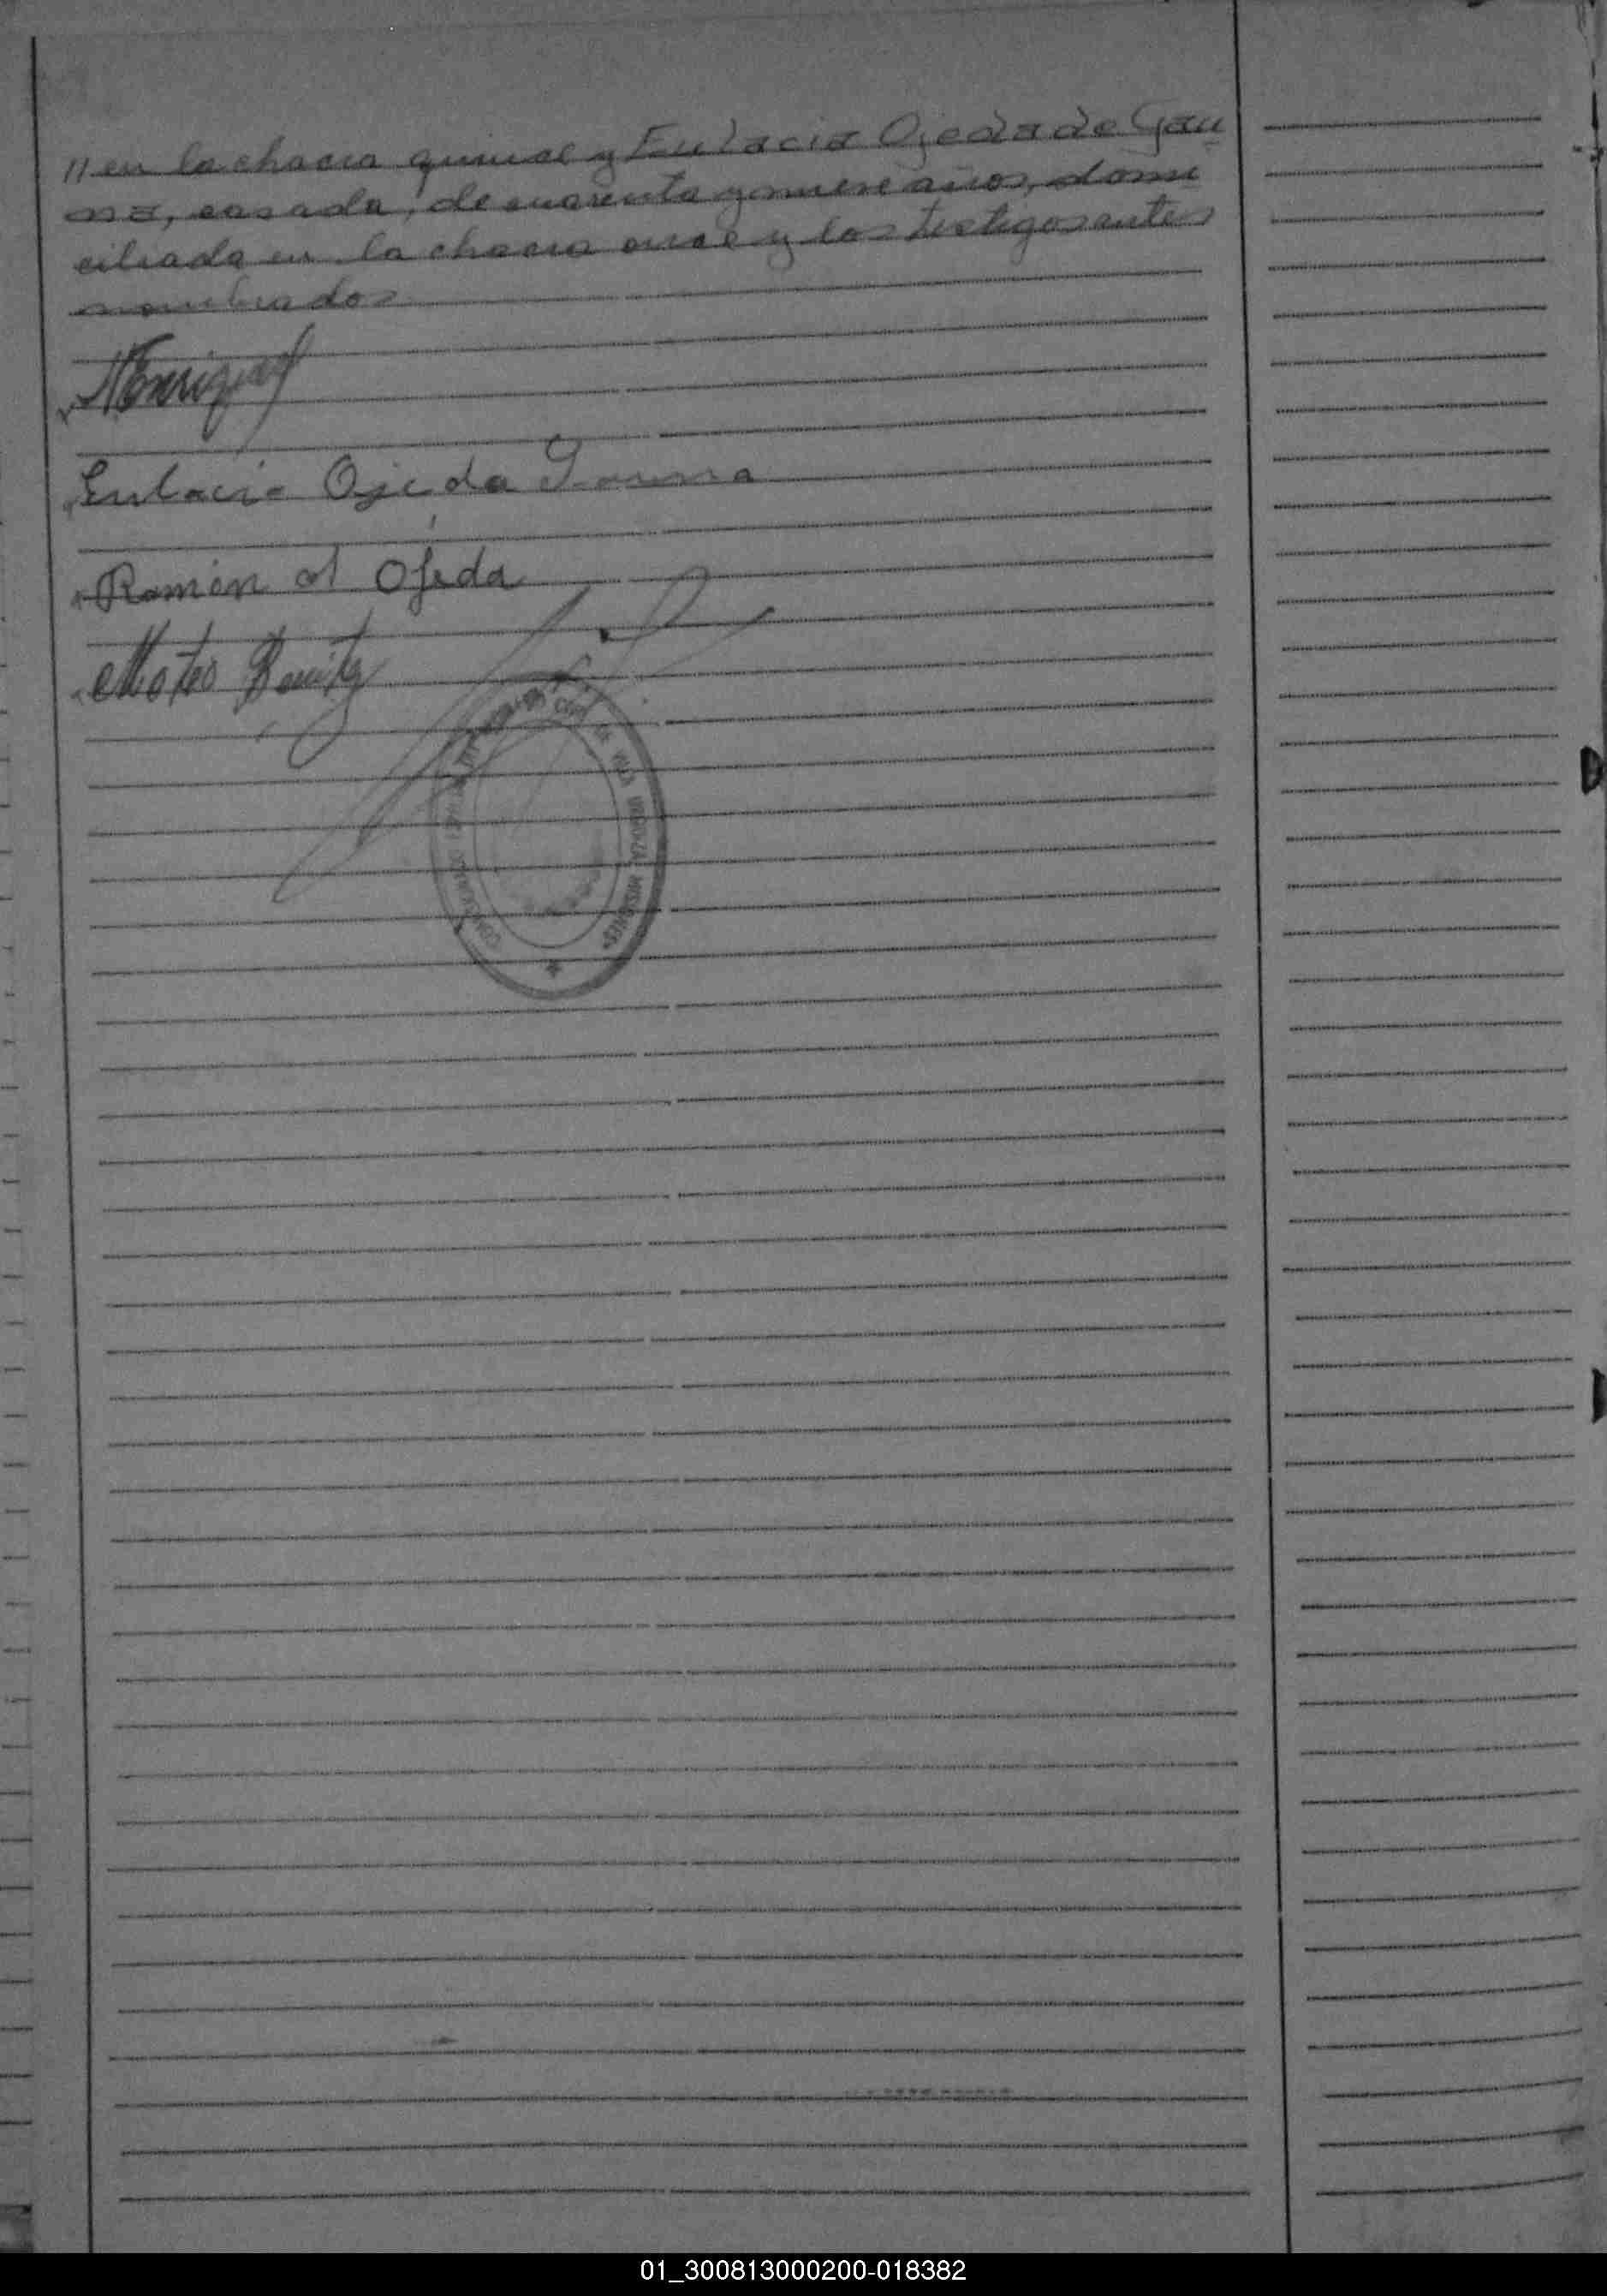 // en la chacra quince y Eulacia Ojeda de Gau
na, casada, de cuarenta y nueve años, domi
ciliada en la chacra once y los testigos antes
nombrados
Eulacia Ojeda Gauna
Ramón A Ojeda
Mateo Benitz
CIVIL DE VILLA URQUIZA, MISIONES
01_300813000200-018382